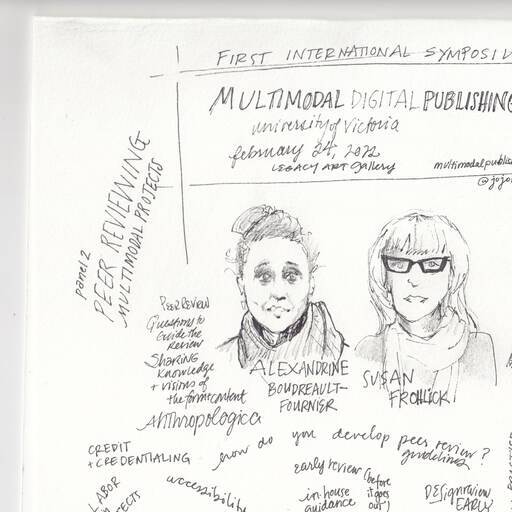 FIRST INTERNATIONAL SYMPOSIU
MULTIMODAL DIGITAL PUBLISHING
university of Victoria
february 24, 2022
LEGACY ART Gallery
multimodalpublis
@jojo
panel 2
PEER REVIEWING
MULTIMODAL PROJECTS
PEER REVIEW
Questions to
Guide the
Review
SHARING
Knowledge
+ visions of
the form content
Anthropologica
ALEXANDRINE
BOUDREAULT-
FOURNIER
SUSAN
FROHLICK
CREDIT
+ CREDENTIALING
how do you develop peer review ?
guidelines
LABOR
accessibility
early review (before
it goes
out)
in-house
guidance
DESIGN review
EARLY